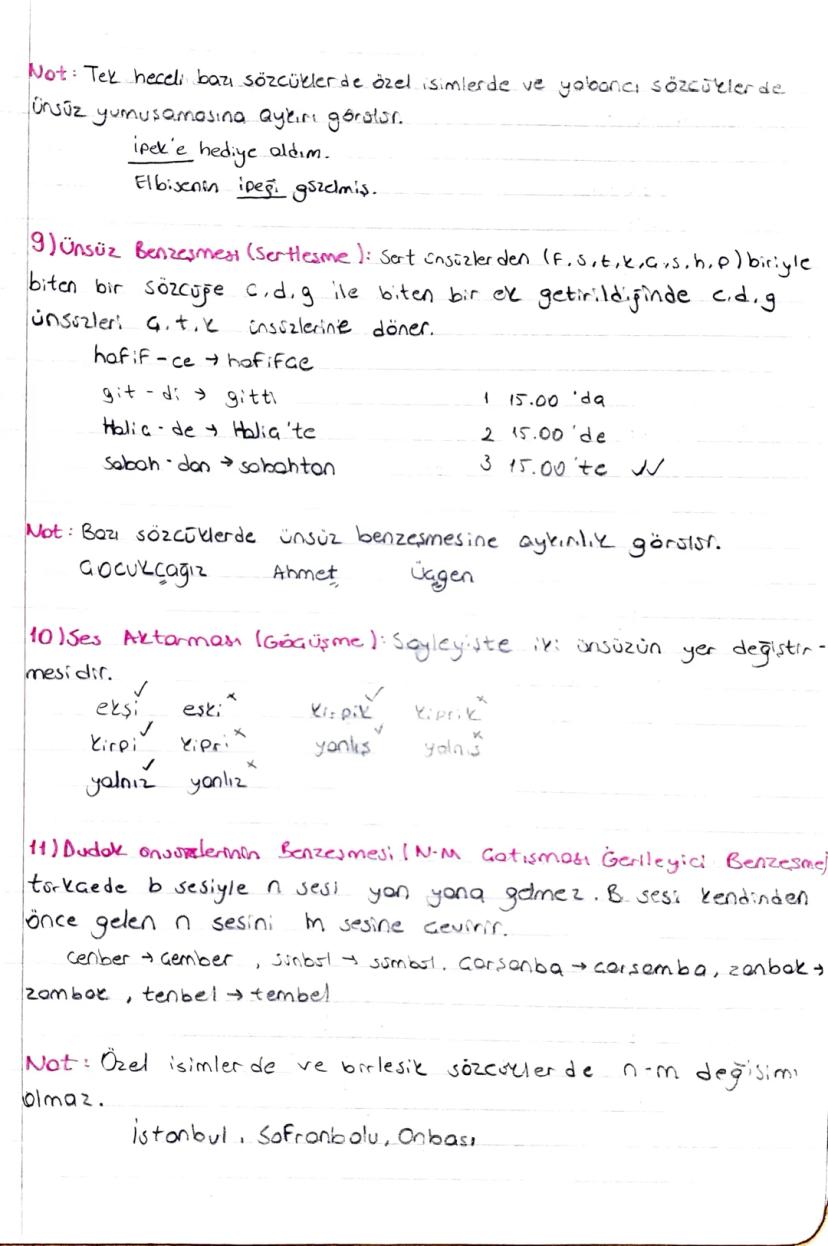 Not: Tek heceli bazı sözcüklerde özel isimlerde ve yabancı sözcüklerde
ünsüz yumuşamasına aykırı görülür.
İpek'e hediye aldım.
Elbisenin ipeği güzelmiş.
9) Ünsüz Benzeşmesi (Sertleşme): Sert ünsüzlerden (f,s,t,k,ç,ş,h,p) biriyle
biten bir sözcüğe c,d,g ile biten bir ek getirildiğinde c,d,g
ünsüzleri ç,t,k ünsüzlerine döner.
hafif - ce → hafifçe
git - di → gitti 1 15.00 'da
Haliç - de → Haliç'te 2 15.00 'de
sabah - dan → sabahtan 3 15.00 'te ✓✓
Not: Bazı sözcüklerde ünsüz benzeşmesine aykırılık görülür.
Çocukçağız Ahmet Üçgen
10) Ses Aktarması (Göçüşme): Söyleyişte iki ünsüzün yer değiştir-
mesidir.
ekşi ✓ eski x kirpik ✓ kiprik x
kirpi ✓ kipri x yanlış ✓ yalnış x
yalnız ✓ yanlız x
11) Dudak ünsüzlerinin Benzeşmesi (N-M Çatışması Gerileyici Benzeşme)
türkçede b sesiyle n sesi yan yana gelmez. B sesi kendinden
önce gelen n sesini m sesine çevirir.
çenber → çember, sünbül → sümbül, çarşanba → çarşamba, zanbak →
zambak, tenbel → tembel
Not: Özel isimlerde ve birleşik sözcüklerde n-m değişimi
olmaz.
İstanbul, Safranbolu, Onbaşı